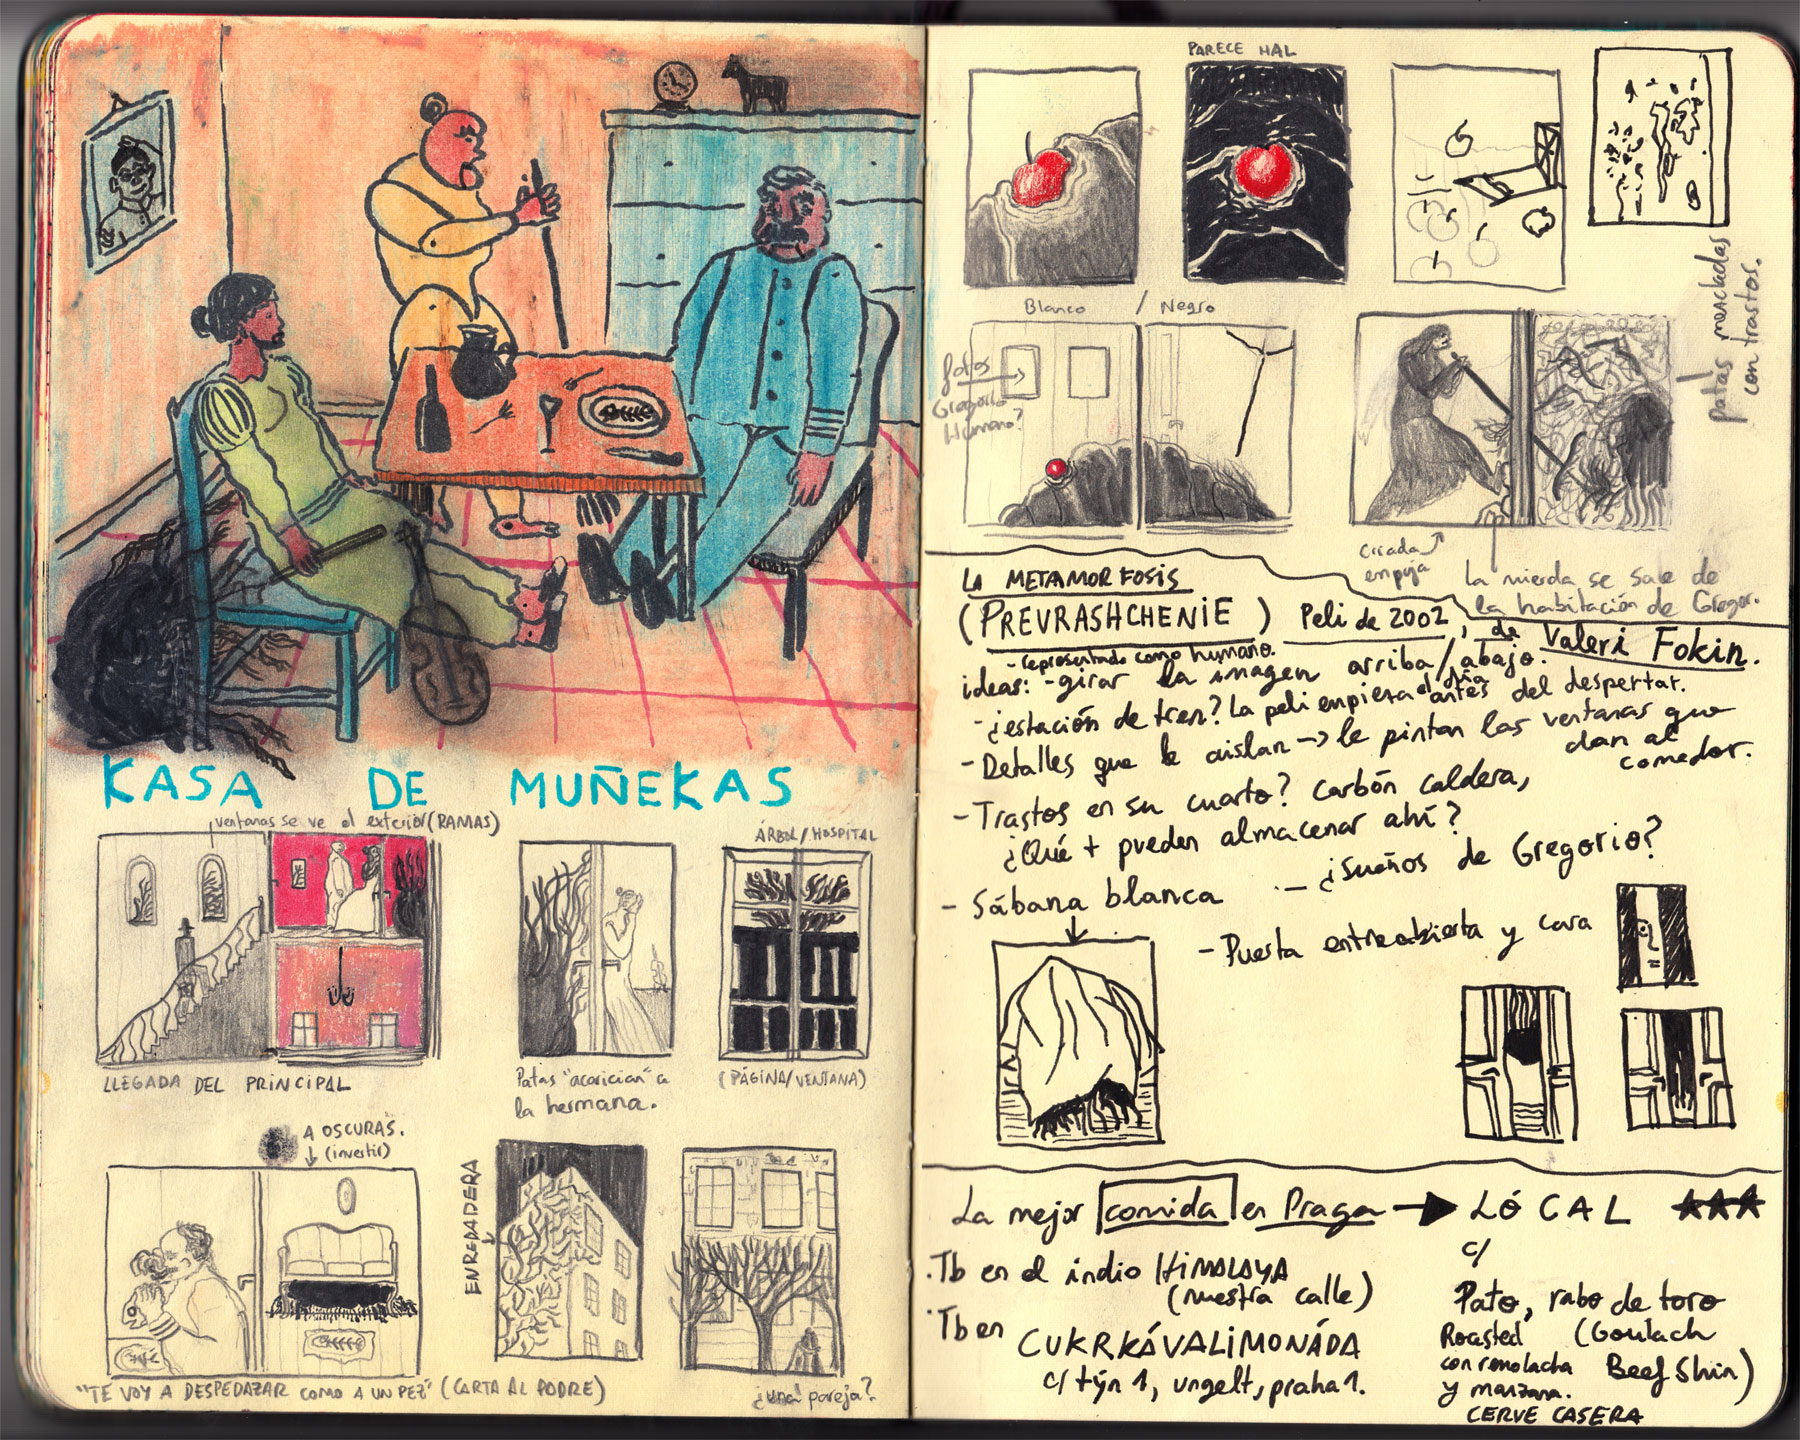 KASA DE MUÑEKAS
ventanas se ve el exterior (RAMAS)
LLEGADA DEL PRINCIPAL
Patas "acarician" a
la hermana.
ÁRBOL/HOSPITAL
(PÁGINA/VENTANA)
A OSCURAS.
(invertir)
"TE VOY A DESPEDAZAR COMO A UN PEZ" (CARTA AL PADRE)
ENREDADERA
¿una pareja?
PARECE HAL
Blanco / Negro
fotos
Gregorio
Humano?
patas mezcladas
con trastos.
Criada
empuja
La mierda se sale de
la habitación de Gregor.
LA METAMORFOSIS
(PREVRASHCHENIE) Peli de 2002, de Valeri Fokin.
- representado como humano.
ideas: - girar la imagen arriba/abajo.
- ¿estación de tren? La peli empieza el día antes del despertar.
- Detalles que le aislan → le pintan las ventanas que
dan al
comedor.
- Trastos en su cuarto? Carbón caldera,
¿Qué + pueden almacenar ahí?
- Sábana blanca
- ¿Sueños de Gregorio?
- Puerta entreabierta y cara
La mejor comida en Praga → LÓCAL
c/
·Tb en el indio HIMALAYA
(nuestra calle)
·Tb en CUKRKÁVALIMONÁDA
c/ týn 1, ungelt, praha 1.
Pato, rabo de toro
Roasted (Goulach
con remolacha Beef Shin)
y manzana.
CERVE CASERA